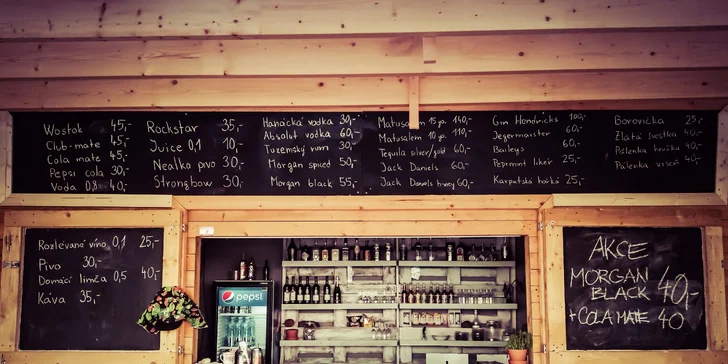 Wostok 45,-
Club-mate 45,-
Cola mate 45,-
Pepsi cola 30,-
Voda 0,8 40,-
Rockstar 35,-
Juice 0,1 10,-
Nealko pivo 30,-
Strongbow 30,-
Hanácká vodka 30,-
Absolut vodka 60,-
Tuzemský rum 30,-
Morgan spiced 50,-
Morgan black 55,-
Matusalem 15 yo. 140,-
Matusalem 10 yo. 110,-
Tequila silver/gold 60,-
Jack Daniels 60,-
Jack Daniels honey 60,-
Gin Hendricks 100,-
Jegermaister 60,-
Baileys 60,-
Pepermint likér 25,-
Karpatská hořká 25,-
Borovička 25,-
Zlatá švestka 40,-
Pálenka hruška 40,-
Pálenka višeň 40,-
Rozlévané víno 0,1 25,-
Pivo 30,-
Domácí limča 0,5 40,-
Káva 35,-
pepsi
AKCE
MORGAN
BLACK 40,-
+ COLA MATE 40,-